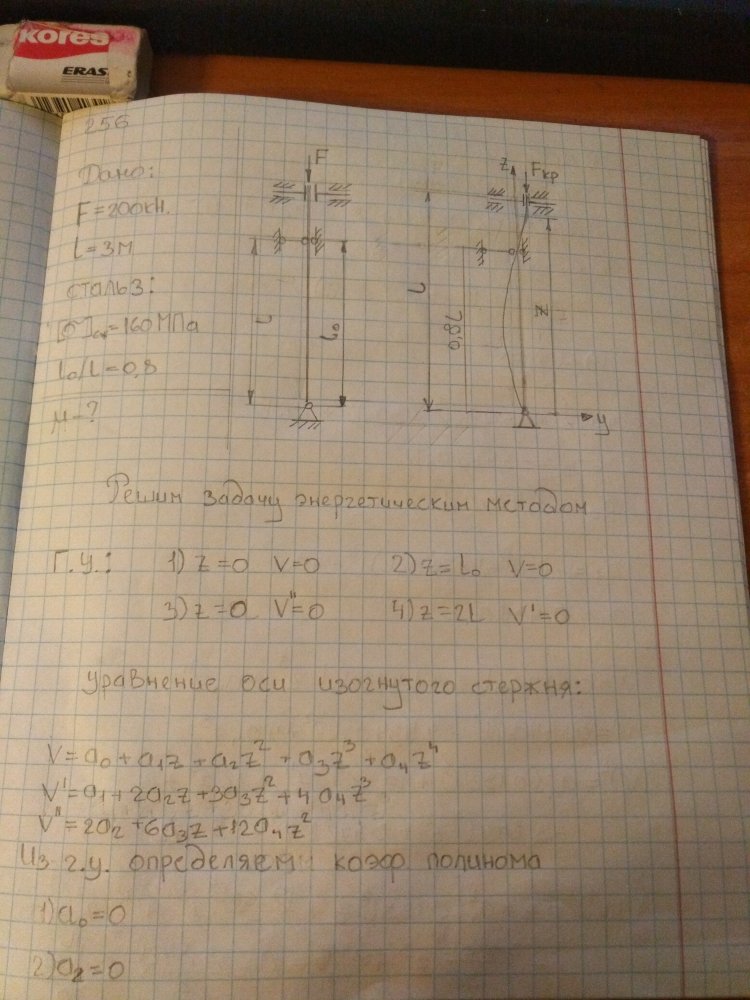 kores
ERAS
256
Дано:
F=200кН.
l=3м
сталь3:
[σ]сж=160МПа
l₀/l=0,8
μ-?
F
L
L₀
z
Fкр
L
0,8L
z
y
Решим задачу энергетическим методом
Г.у.: 1) z=0 V=0 2) z=L₀ V=0
3) z=0 V"=0 4) z=2L V'=0
уравнение оси изогнутого стержня:
V=a₀+a₁z+a₂z²+a₃z³+a₄z⁴
V'=a₁+2a₂z+3a₃z²+4a₄z³
V"=2a₂+6a₃z+12a₄z²
Из г.у. определяем коэф полинома
1) a₀=0
2) a₂=0